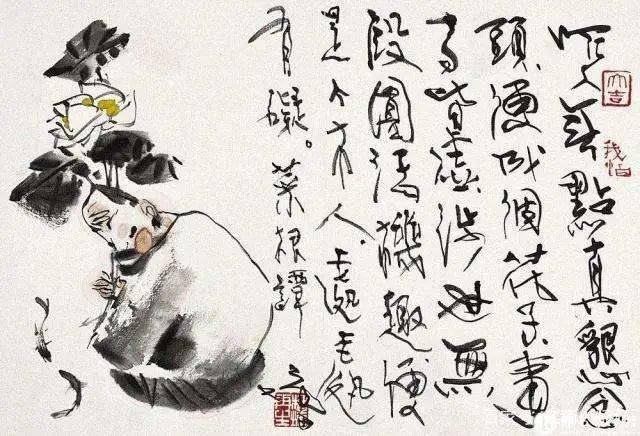 作人無點真懇念
頭,便成個花子,事
事皆虛,涉世無
段圓活機趣,便
是个木人,處處
有礙。菜根譚
大吉